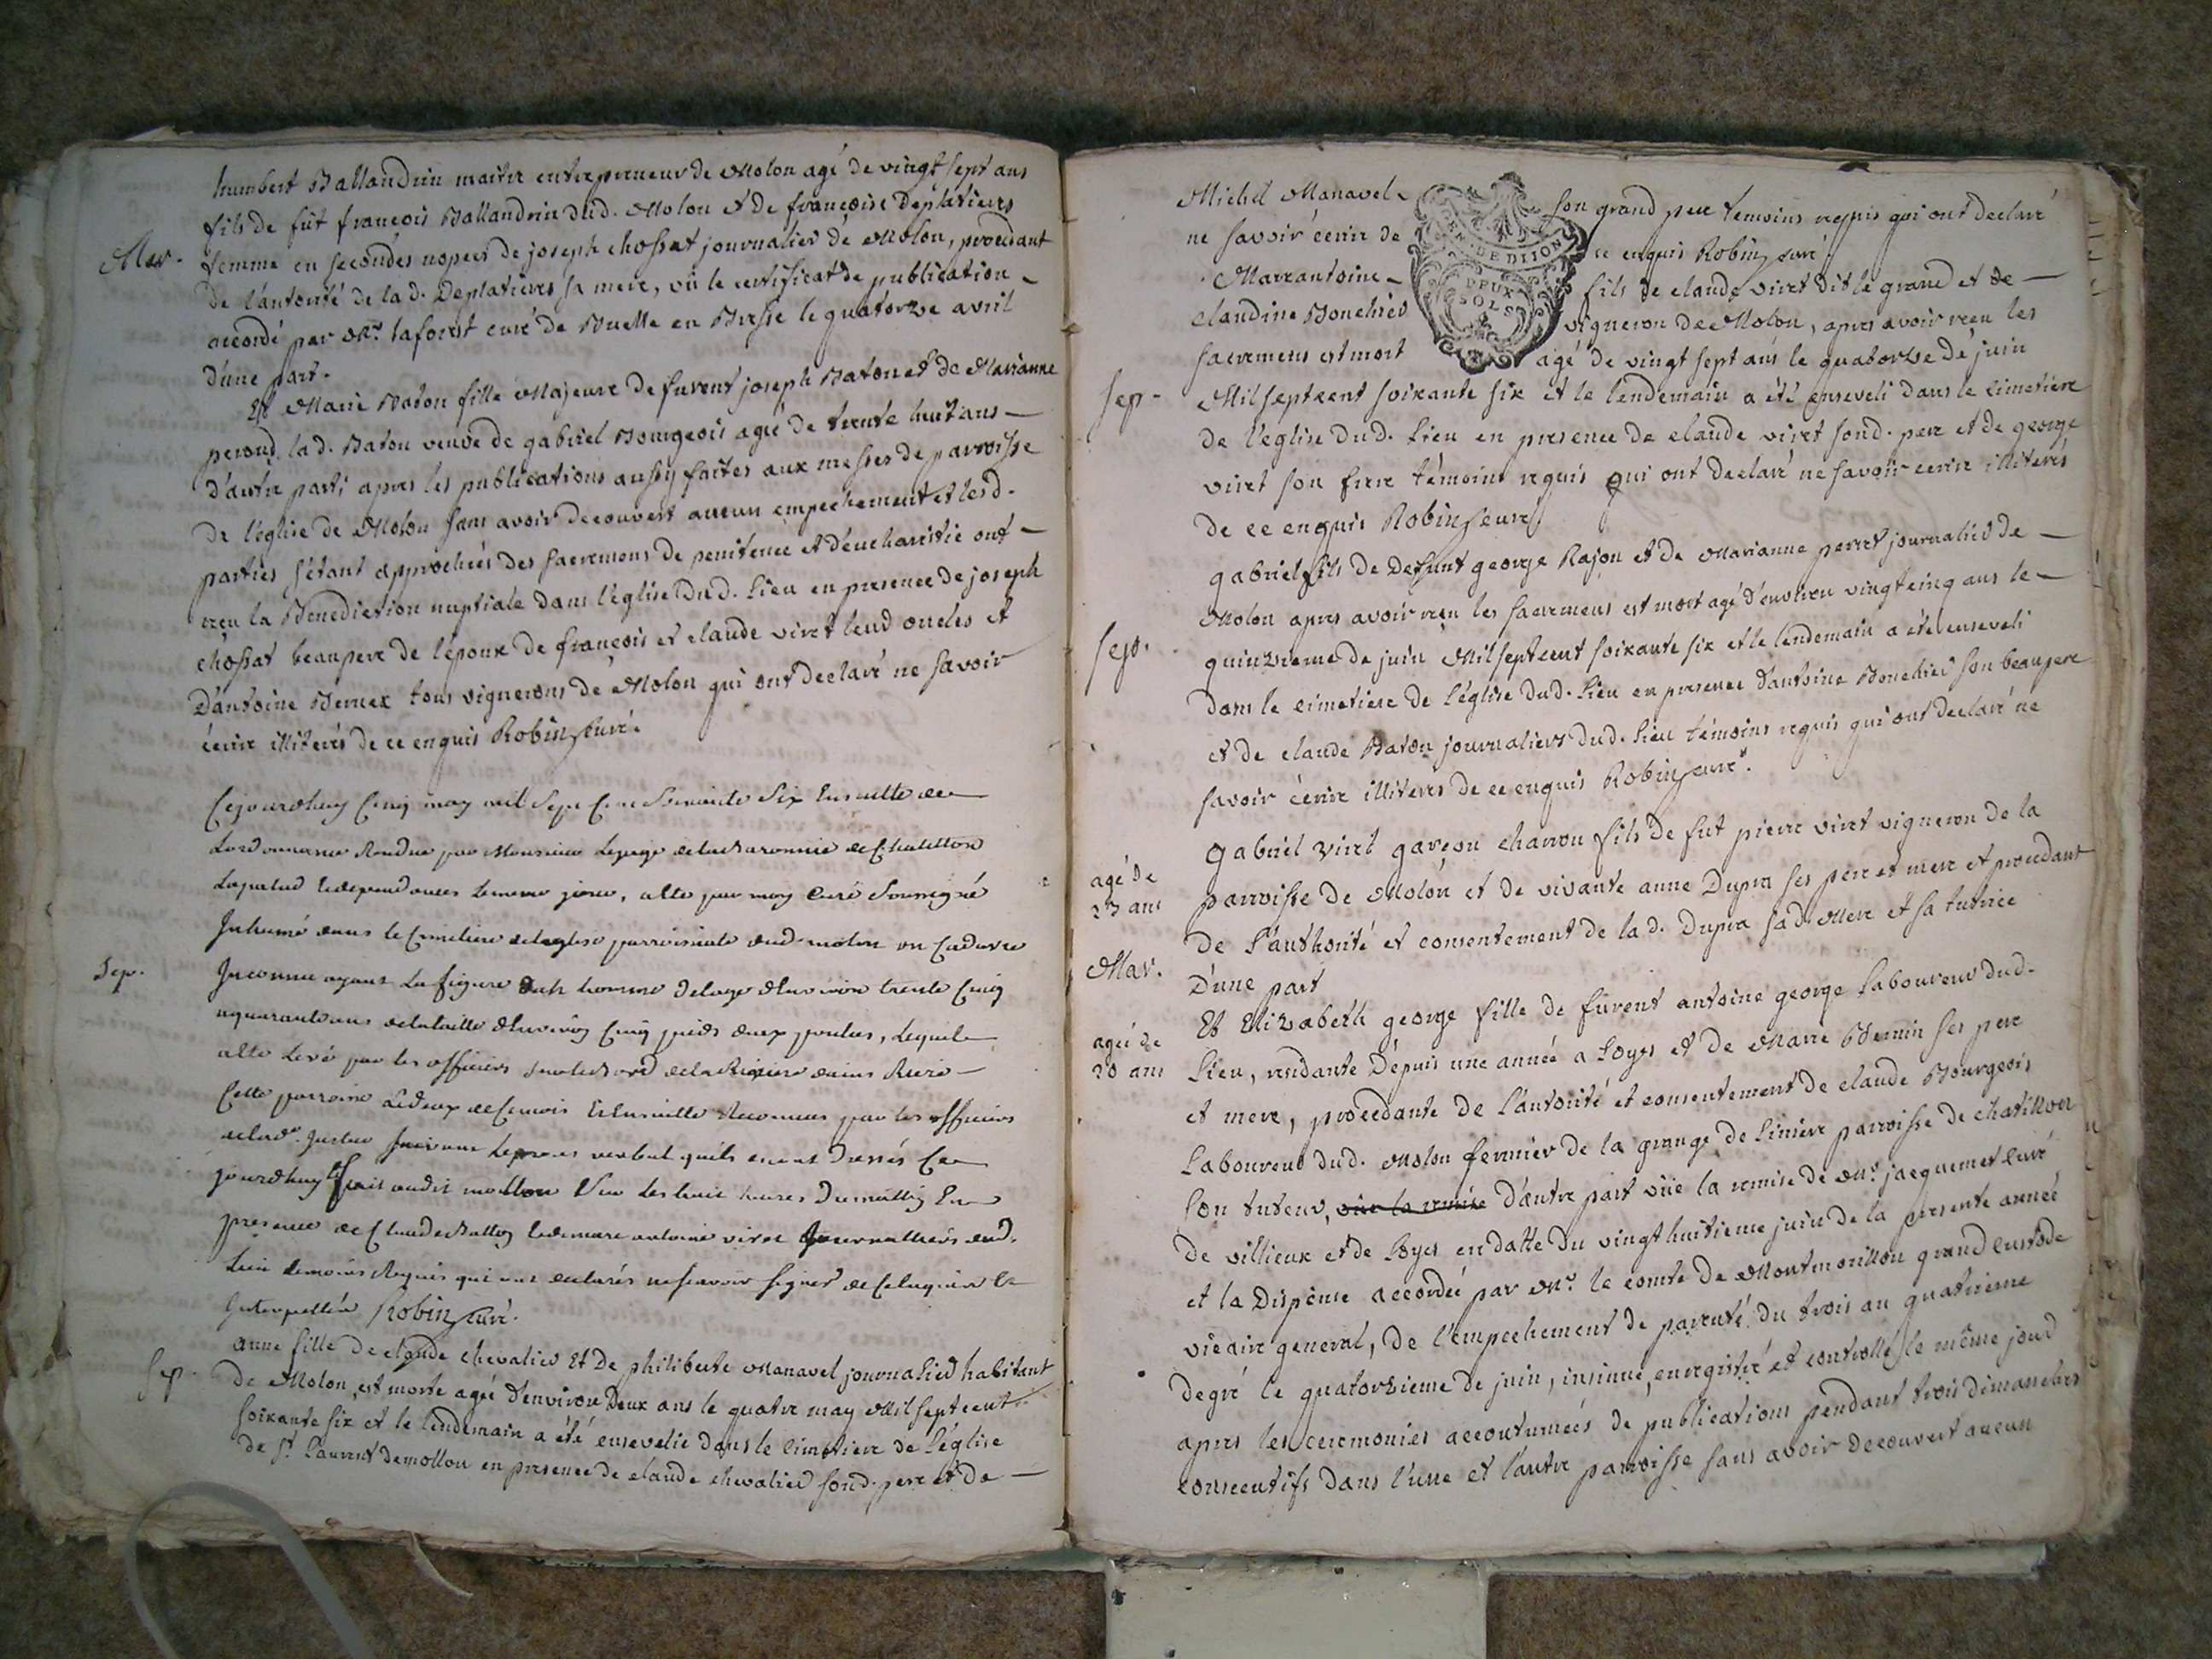 humbert Ballandrin maitre entrepreneur de Molon agé de vingt sept ans
fils de fût françois Ballandrin dud. Molon et de françoise Deplatieres
Mar. femme en secondes nopces de joseph chossat journalier de Molon, procedant
de l'autorité de la d. Deplatieres sa mere, vû le certificat de publication
accordé par Mr. laforest curé de en Bresse le quatorze avril
d'une part.
Et Marie Baton fille Majeure de furent joseph Baton et de Marianne
perond lad. Baton veuve de gabriel Bourgeois agée de trente huit ans
d'autre parti apres les publications aussy faites aux messes de parroisse
de l'église de Molon sans avoir decouvert aucun empechement et lesd.
parties s'étant approchées des sacremens de penitence et d'eucharistie ont
reçu la Benediction nuptiale dans l'église dud. lieu en presence de joseph
chossat beaupere de l'époux de françois et claude viret leud oncles et
d'antoine Bernex tous vignerons de Molon qui ont declaré ne savoir
écrire illiterés de ce enquis Robin curé.
Cejourdhuy cinq may mil sept cent soixante six ensuitte de
Lordonnance Rendue par Monsieur Lejuge delabaronnie de Chatillon
Lapalud et dependances lemême jour, a été par moy curé soussigné
Inhumé dans le cimetiere delaglise parroissiale dud. molon un cadavre
Sep. Inconnu ayant la figure d'un homme delage d'environ trente cinq
a quarante ans delataille d'environ cinq pieds deux pouces, lequel
a été levé par les officiers surlebord delariviere dains Riere
cette parroisse le deux de ce mois et ensuitte Reconnu par les officiers
delad. Justice suivant leproces verbal quils en ont dressés ce
jourdhuy fait audit mollon sur les huit heures du matin en
presence de Claude Batton et de marc antoine viret journalliers dud.
lieu temoins Requis qui ont declarés ne scavoir signer de ce enquis et
Interpellés Robin curé.
anne fille de claude chevalier et de philiberte Manavel journalier habitant
Sep. de Molon, est morte agée d'environ deux ans le quatre may Mil sept cent
soixante six et le lendemain a été ensevelie dans le cimetiere de l'église
de St. Laurent demollon en presence de claude chevalier sond. pere et de
Michel Manavel son grand pere temoins requis qui ont declaré
ne savoir écrire de ce enquis Robin curé
EN. DE DIJON
DEUX
SOLS
Marcantoine fils de claude viret dit le grand et de
claudine Bonchier vigneron de Molon, apres avoir reçu les
sacremens est mort agé de vingt sept ans le quatorze de juin
Sep. Mil sept cent soixante six et le lendemain a été enseveli dans le cimetiere
de l'eglise dud. lieu en presence de claude viret sond. pere et de george
viret son frere témoins requis qui ont declaré ne savoir ecrire illiterés
de ce enquis Robin curé
gabriel fils de Defunt george Rajon et de Marianne perret journalier de
Molon apres avoir reçu les sacremens est mort agé d'environ vingt cinq ans le
Sep. quinzieme de juin Mil sept cent soixante six et le lendemain a été enseveli
dans le cimetiere de l'église dud. lieu en presence d'antoine Bonchier son beaupere
et de claude Baton journaliers dud. lieu témoins requis qui ont declaré ne
savoir écrire illiteres de ce enquis Robin curé.
gabriel viret garçon charron fils de fut pierre viret vigneron de la
agé de
23 ans
parroisse de Molon et de vivante anne Dupra ses pere et mere et procedant
de l'authorité et consentement de la d. Dupra sad. Mere et sa tutrice
Mar. D'une part
Et Elizabeth george fille de furent antoine george laboureur dud.
agée de
20 ans
lieu, residante Depuis une année a Loyes et de Marie Bernin ses pere
et mere, procedante de l'autorité et consentement de claude Bourgeois
Laboureur dud. Molon fermier de la grange de liniere parroisse de chatillon
son tuteur, vüe la remise d'autre part vüe la remise de Mr. jacquemet curé
de villieux et de Loyes en datte du vingt huitieme juin de la presente année
et la Dispense accordée par Mr. le comte de Montmorillon grand custode
vicaire general, de l'empechement de parenté du trois au quatrieme
degré le quatorzieme de juin, insinué, enregistré et controllé le même jour
apres les ceremonies accoutumées de publications pendant trois dimanches
consecutifs dans l'une et l'autre parroisse sans avoir decouvert aucun